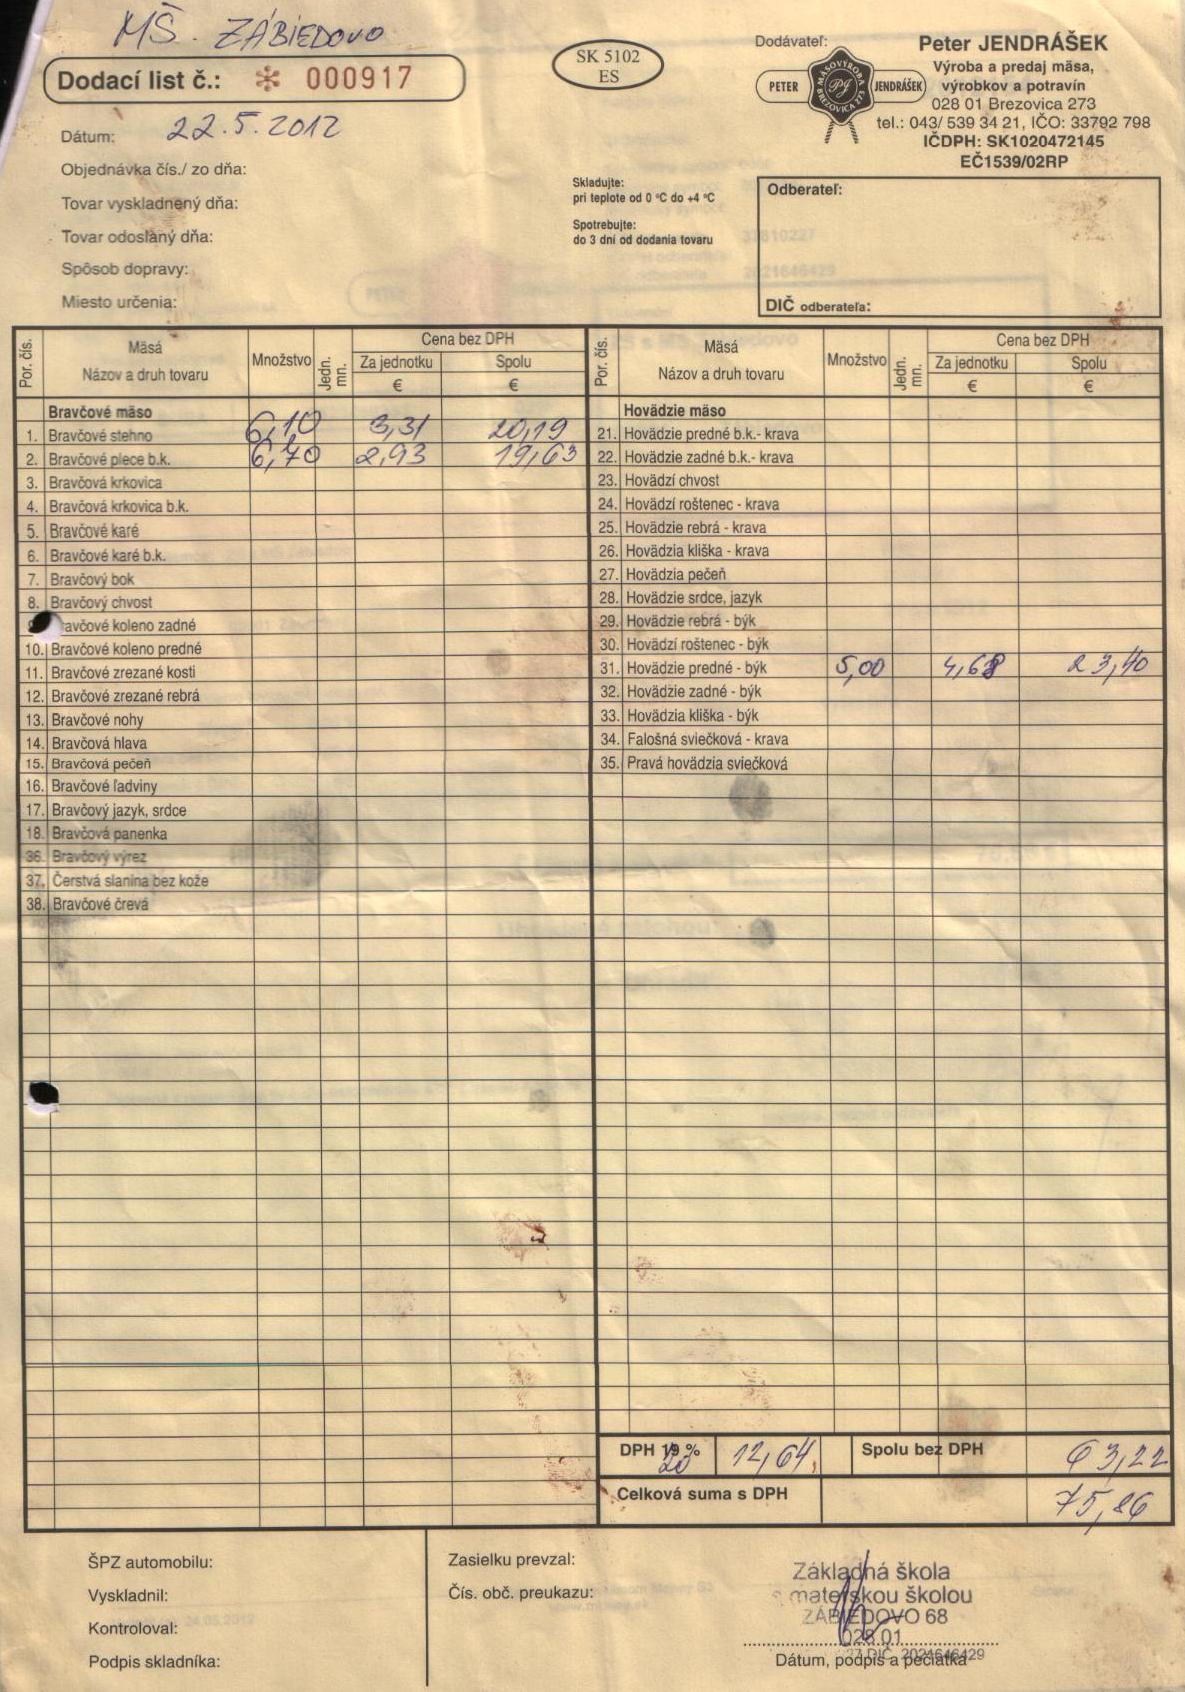 MŠ. ZÁBIEDOVO
Dodací list č.: * 000917
SK 5102
ES
Dodávateľ:
PETER
MÄSOVÝROBA
PJ
BREZOVICA 273
JENDRÁŠEK
Peter JENDRÁŠEK
Výroba a predaj mäsa,
výrobkov a potravín
028 01 Brezovica 273
tel.: 043/ 539 34 21, IČO: 33792 798
IČDPH: SK1020472145
EČ1539/02RP
Dátum: 22.5.2012
Objednávka čís./ zo dňa:
Tovar vyskladnený dňa:
Tovar odoslaný dňa:
Spôsob dopravy:
Miesto určenia:
Skladujte:
pri teplote od 0 °C do +4 °C
Spotrebujte:
do 3 dní od dodania tovaru
Odberateľ:
DIČ odberateľa:
Por. čís.
Mäsá
Názov a druh tovaru
Množstvo
Jedn. mn.
Cena bez DPH
Za jednotku
€
Spolu
€
Bravčové mäso
1. Bravčové stehno 6,10 3,31 20,19
2. Bravčové plece b.k. 6,70 2,93 19,63
3. Bravčová krkovica
4. Bravčová krkovica b.k.
5. Bravčové karé
6. Bravčové karé b.k.
7. Bravčový bok
8. Bravčový chvost
avčové koleno zadné
10. Bravčové koleno predné
11. Bravčové zrezané kosti
12. Bravčové zrezané rebrá
13. Bravčové nohy
14. Bravčová hlava
15. Bravčová pečeň
16. Bravčové ľadviny
17. Bravčový jazyk, srdce
18. Bravčová panenka
36. Bravčový výrez
37. Čerstvá slanina bez kože
38. Bravčové črevá
Por. čís.
Mäsá
Názov a druh tovaru
Množstvo
Jedn. mn.
Cena bez DPH
Za jednotku
€
Spolu
€
Hovädzie mäso
21. Hovädzie predné b.k.- krava
22. Hovädzie zadné b.k.- krava
23. Hovädzí chvost
24. Hovädzí roštenec - krava
25. Hovädzie rebrá - krava
26. Hovädzia kliška - krava
27. Hovädzia pečeň
28. Hovädzie srdce, jazyk
29. Hovädzie rebrá - býk
30. Hovädzí roštenec - býk
31. Hovädzie predné - býk 5,00 4,68 23,40
32. Hovädzie zadné - býk
33. Hovädzia kliška - býk
34. Falošná sviečková - krava
35. Pravá hovädzia sviečková
DPH 19 % 20 12,64 Spolu bez DPH 63,22
Celková suma s DPH 75,86
ŠPZ automobilu:
Vyskladnil:
Kontroloval:
Podpis skladníka:
Zasielku prevzal:
Čís. obč. preukazu:
Základná škola
s materskou školou
ZÁBIEDOVO 68
028 01
DIČ 2021646429
Dátum, podpis a pečiatka